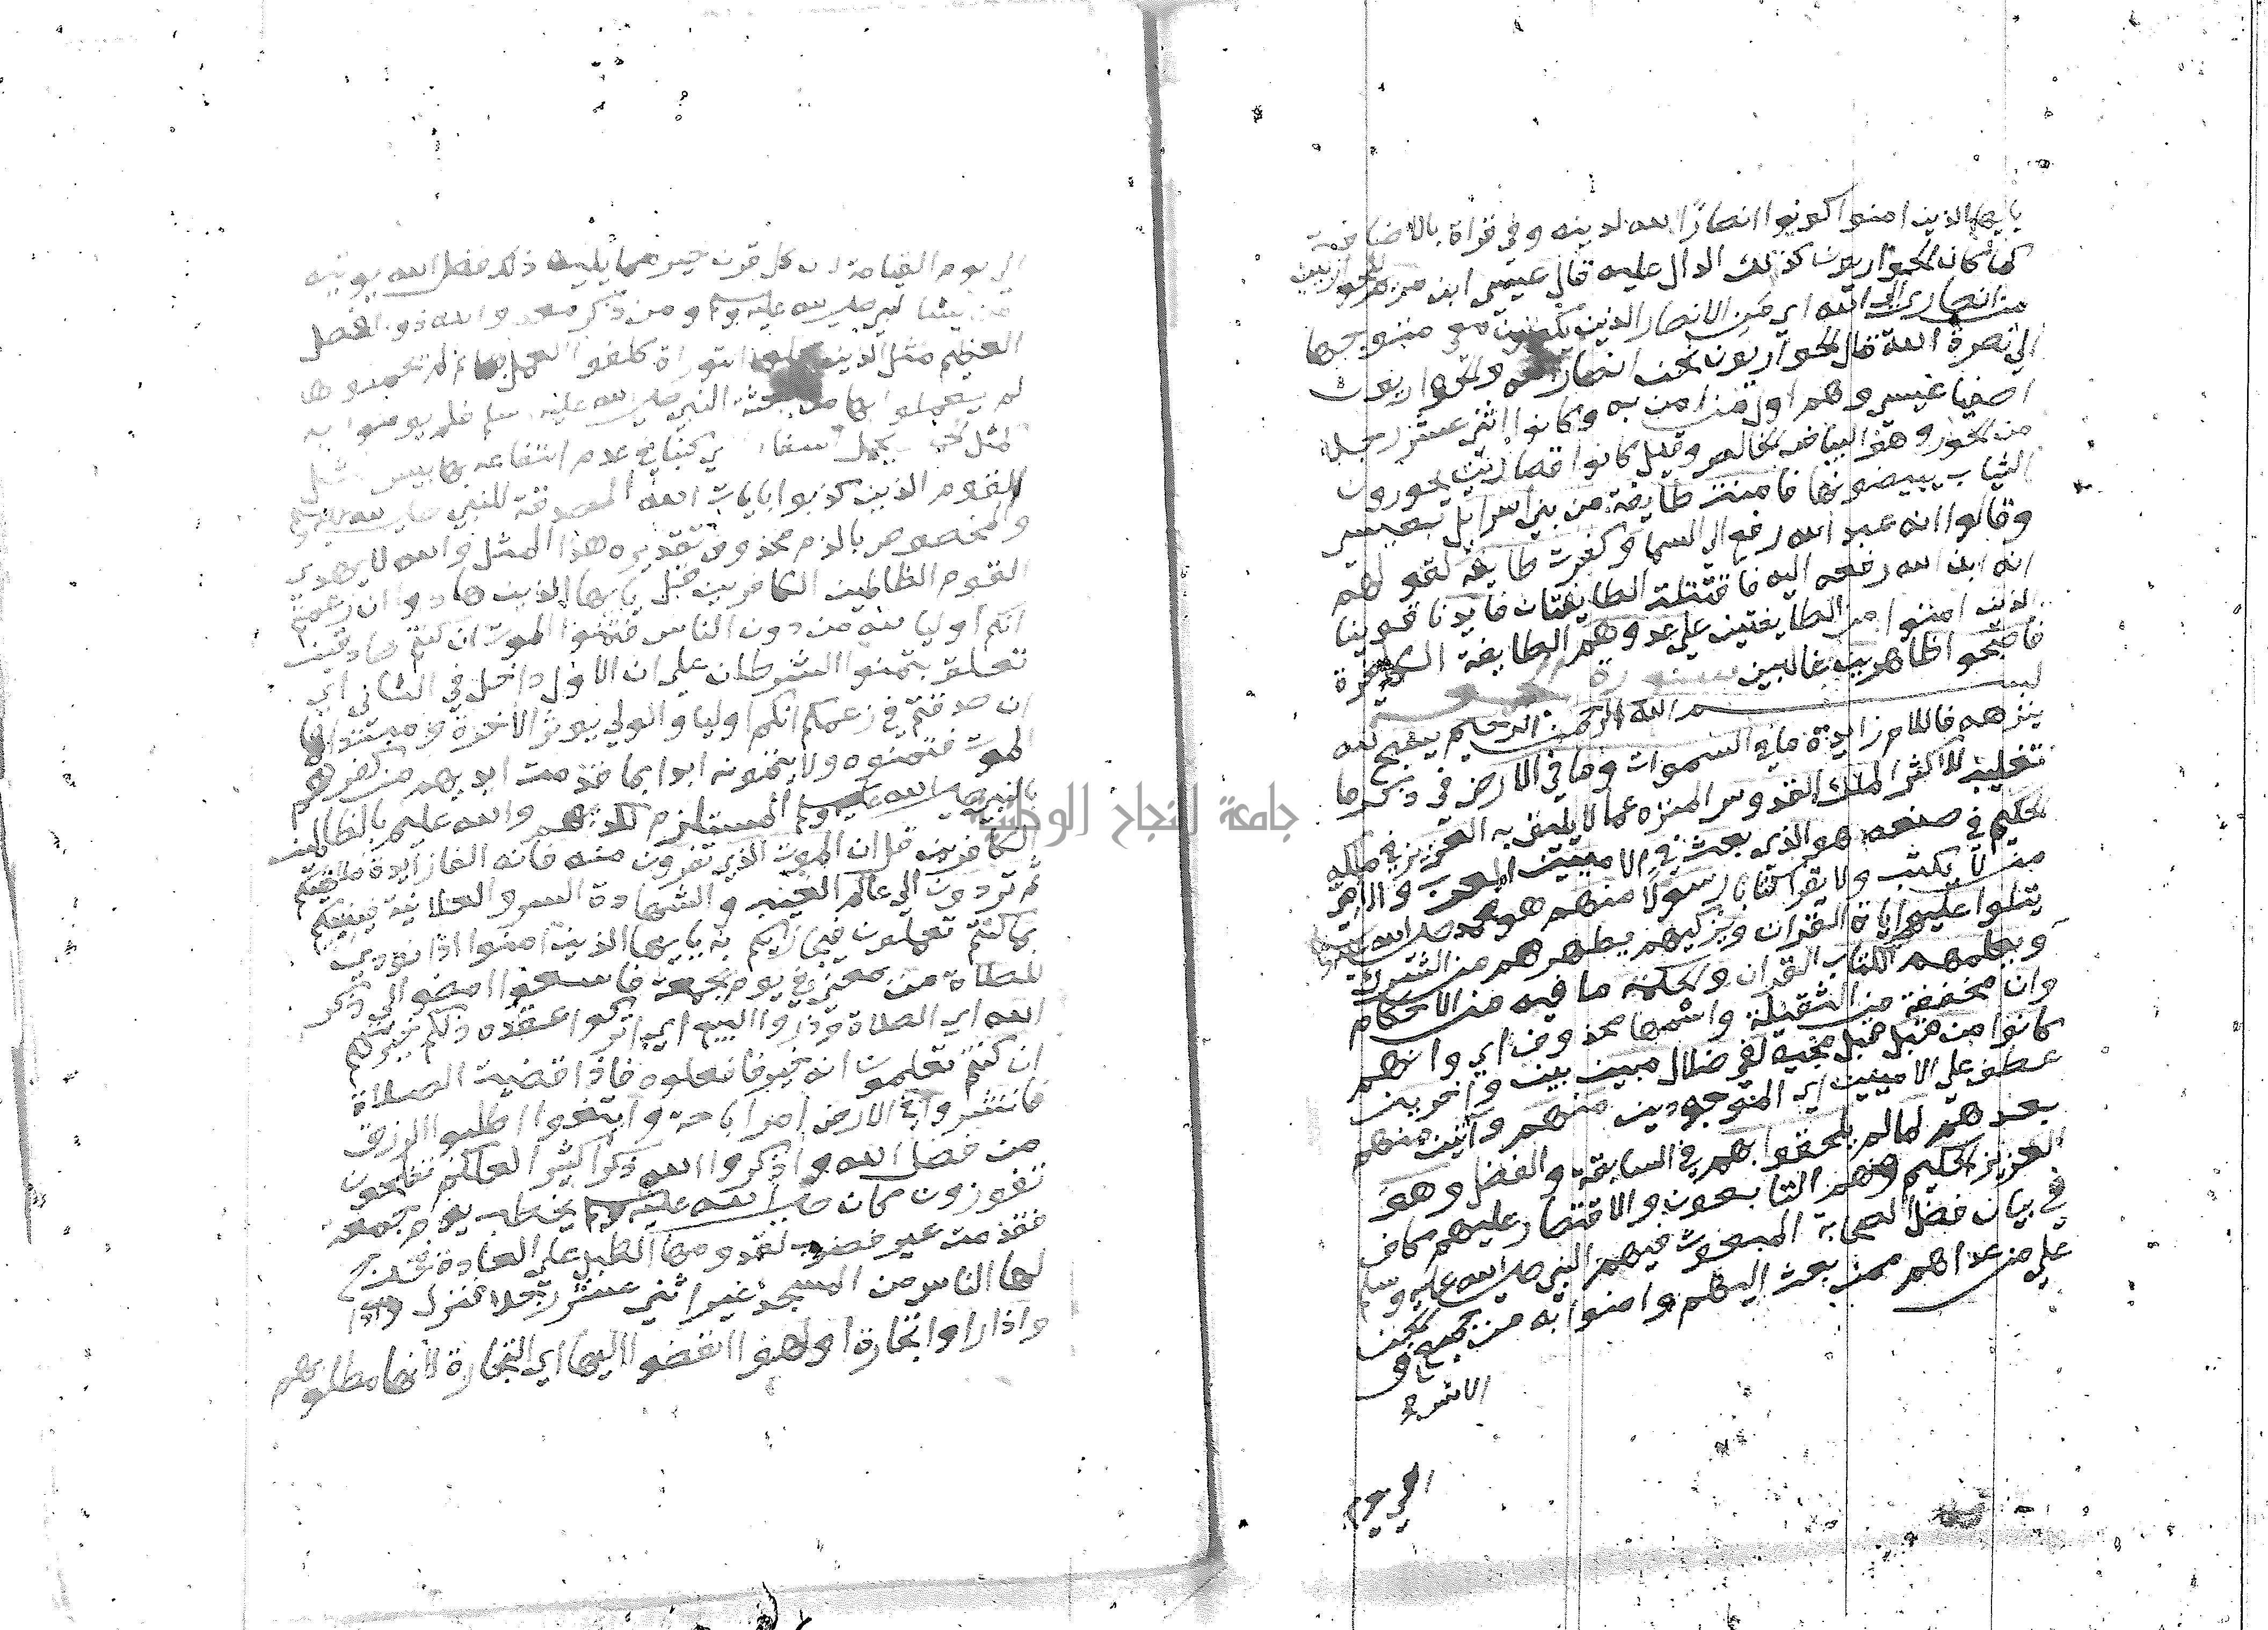 يايها الذين امنوا كونوا انصارا لله لدينه وفي قراة بالاضافة
كما كان الحواريون كذلك الدال عليه قال عيسى ابن مريم للحواريين
من انصاري الى الله اي من الانصار الذين يكونون معي متوجها
الى نصرة الله قال الحواريون نحن انصار الله والحواريون
اصفيا عيسى وهم اول من امن به وكانوا اثني عشر رجلا
من الحور وهو البياض الخالص وقيل كانوا قصارين يحورون
الثياب يبيضونها فامنت طايفة من بني اسرايل بعيسى
وقالوا انه عبد الله رفع الى السما وكفرت طايفة لقولهم
انه ابن الله رفعه اليه فاقتتلت الطايفتان فايدنا قوينا
الذين امنوا من الطايفتين على عدوهم الطايفة الكافرة
فاصبحوا ظاهرين غالبين سورة الجمعة
بسم الله الرحمن الرحيم يسبح لله
ينزهه فاللام زايدة ما في السموات وما في الارض في ذكر ما
تغليب للاكثر الملك القدوس المنزه عما لا يليق به العزيز في ملكه
الحكيم في صنعه هو الذي بعث في الاميين العرب والامي
من لا يكتب ولا يقرا كتابا رسولا منهم هو محمد صلى الله عليه وسلم
يتلوا عليهم اياته القران ويزكيهم يطهرهم من الشرك
ويعلمهم الكتاب القران والحكمة ما فيه من الاحكام
وان مخففة من الثقيلة واسمها محذوف اي وانهم
كانوا من قبل قبل مجيه لفي ضلال مبين بين واخرين
عطف على الاميين اي الموجودين منهم واتين منهم
بعدهم لما لم يلحقوا بهم في السابقة والفضل وهو
العزيز الحكيم وهم التابعون والاقتصار عليهم كاف
في بيان فضل الصحابة المبعوث فيهم النبي صلى الله عليه وسلم
على من عداهم ممن بعث اليهم وامنوا به من جميع
الى يوم
الى يوم القيامة لان كل قرن خير مما يليه ذلك فضل الله يوتيه
من يشا النبي صلى الله عليه وسلم ومن ذكر معه والله ذو الفضل
العظيم مثل الذين حملوا التوراة كلفوا العمل بها ثم لم يحملوها
لم يعملوا بما فيها من بعثة النبي صلى الله عليه وسلم فلم يومنوا به
كمثل الحمار يحمل اسفارا اي كتبا في عدم انتفاعه بها بيس مثل
القوم الذين كذبوا بايات الله المصدقة للنبي صلى الله عليه وسلم
والمخصوص بالذم محذوف تقديره هذا المثل والله لا يهدي
القوم الظالمين الكافرين قل يايها الذين هادوا ان زعمتم
انكم اوليا لله من دون الناس فتمنوا الموت ان كنتم صادقين
تعلق بتمنوا الشرطان على ان الاول داخل في الثاني اي
ان صدقتم في زعمكم انكم اوليا والولي يوثر الاخرة ومبتداها
الموت فتمنوه ولا يتمنونه ابدا بما قدمت ايديهم من كفرهم
بالنبي صلى الله عليه وسلم المستلزم لكذبهم والله عليم بالظالمين
الكافرين قل ان الموت الذي تفرون منه فانه الفا زايدة ملاقيكم
ثم تردون الى عالم الغيب والشهادة السر والعلانية فينبيكم
بما كنتم تعملون فيجازيكم به يايها الذين امنوا اذا نودي
للصلاة من بمعنى في يوم الجمعة فاسعوا امضوا الى ذكر
الله اي الصلاة وذروا البيع اي اتركوا عقده ذلكم خير لكم
ان كنتم تعلمون انه خير فافعلوه فاذا قضيت الصلاة
فانتشروا في الارض امر اباحة وابتغوا اطلبوا الرزق
من فضل الله واذكروا الله ذكرا كثيرا لعلكم تفلحون
تفوزون كان صلى الله عليه وسلم يخطب يوم جمعة
فقدمت عير فضرب لقدومها الطبل على العادة فخرج
لها الناس من المسجد غير اثني عشر رجلا فنزل
واذا راوا تجارة او لهوا انفضوا اليها اي التجارة لانها مطلوبهم
جامعة النجاح الوطنية